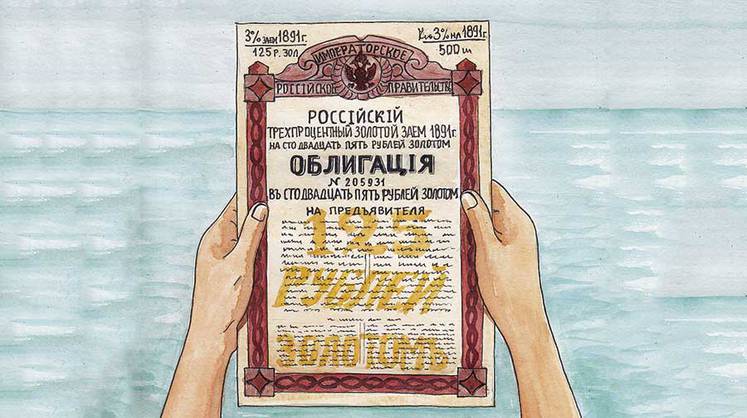 3% заем 1891г.
125 р. зол.
3% 1891г.
500
ИМПЕРАТОРСКОЕ
РОССІЙСКОЕ ПРАВИТЕЛЬСТВО
РОССІЙСКІЙ
ТРЕХПРОЦЕНТНЫЙ ЗОЛОТОЙ ЗАЕМ 1891г.
НА СТО ДВАДЦАТЬ ПЯТЬ РУБЛЕЙ ЗОЛОТОМ
ОБЛИГАЦІЯ
N 205931
ВЪ СТО ДВАДЦАТЬ ПЯТЬ РУБЛЕЙ ЗОЛОТОМ
НА ПРЕДЪЯВИТЕЛЯ
125
РУБЛЕЙ
ЗОЛОТОМЪ